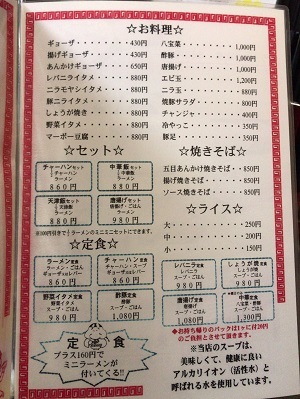 ☆お料理☆
ギョーザ・・・・・・430円
揚げギョーザ・・・・430円
あんかけギョーザ・・650円
レバニライタメ・・・880円
ニラモヤシイタメ・・880円
豚ニライタメ・・・・880円
しょうが焼き・・・・880円
野菜イタメ・・・・・880円
マーボー豆腐・・・・880円
八宝菜・・・・・・・1,000円
酢豚・・・・・・・・1,200円
唐揚げ・・・・・・・1,000円
エビ玉・・・・・・・1,200円
ニラ玉・・・・・・・880円
焼豚サラダ・・・・・800円
チャンジャ・・・・・400円
冷やっこ・・・・・・350円
豚足・・・・・・・・350円
☆セット☆
チャーハンセット
チャーハン
ラーメン
860円
中華飯セット
中華飯
ラーメン
880円
天津飯セット
天津飯
ラーメン
880円
唐揚げセット
唐揚げ
ラーメン
980円
☆焼きそば☆
五目あんかけ焼きそば・・850円
揚げ焼きそば・・・・・850円
ソース焼きそば・・・・850円
☆ライス☆
大・・・・・・・250円
中・・・・・・・200円
小・・・・・・・150円
☆定食☆
ラーメン定食
ラーメン・ごはん
860円
チャーハン定食
チャーハン・スープ
960円
レバニラ定食
スープ・ごはん
980円
しょうが焼定食
スープ・ごはん
980円
野菜イタメ定食
スープ・ごはん
980円
酢豚定食
スープ・ごはん
1,080円
唐揚げ定食
スープ・ごはん
1,080円
中華定食
1,300円
定食
プラス160円で
ミニラーメンが
付いてくる!!
◆お持ち帰りのパックは1ヶに付20円
のご負担とさせて頂きます。
※当店のスープは、
美味しくて、健康に良い
アルカリイオン（活性水）と
呼ばれる水を使用しています。